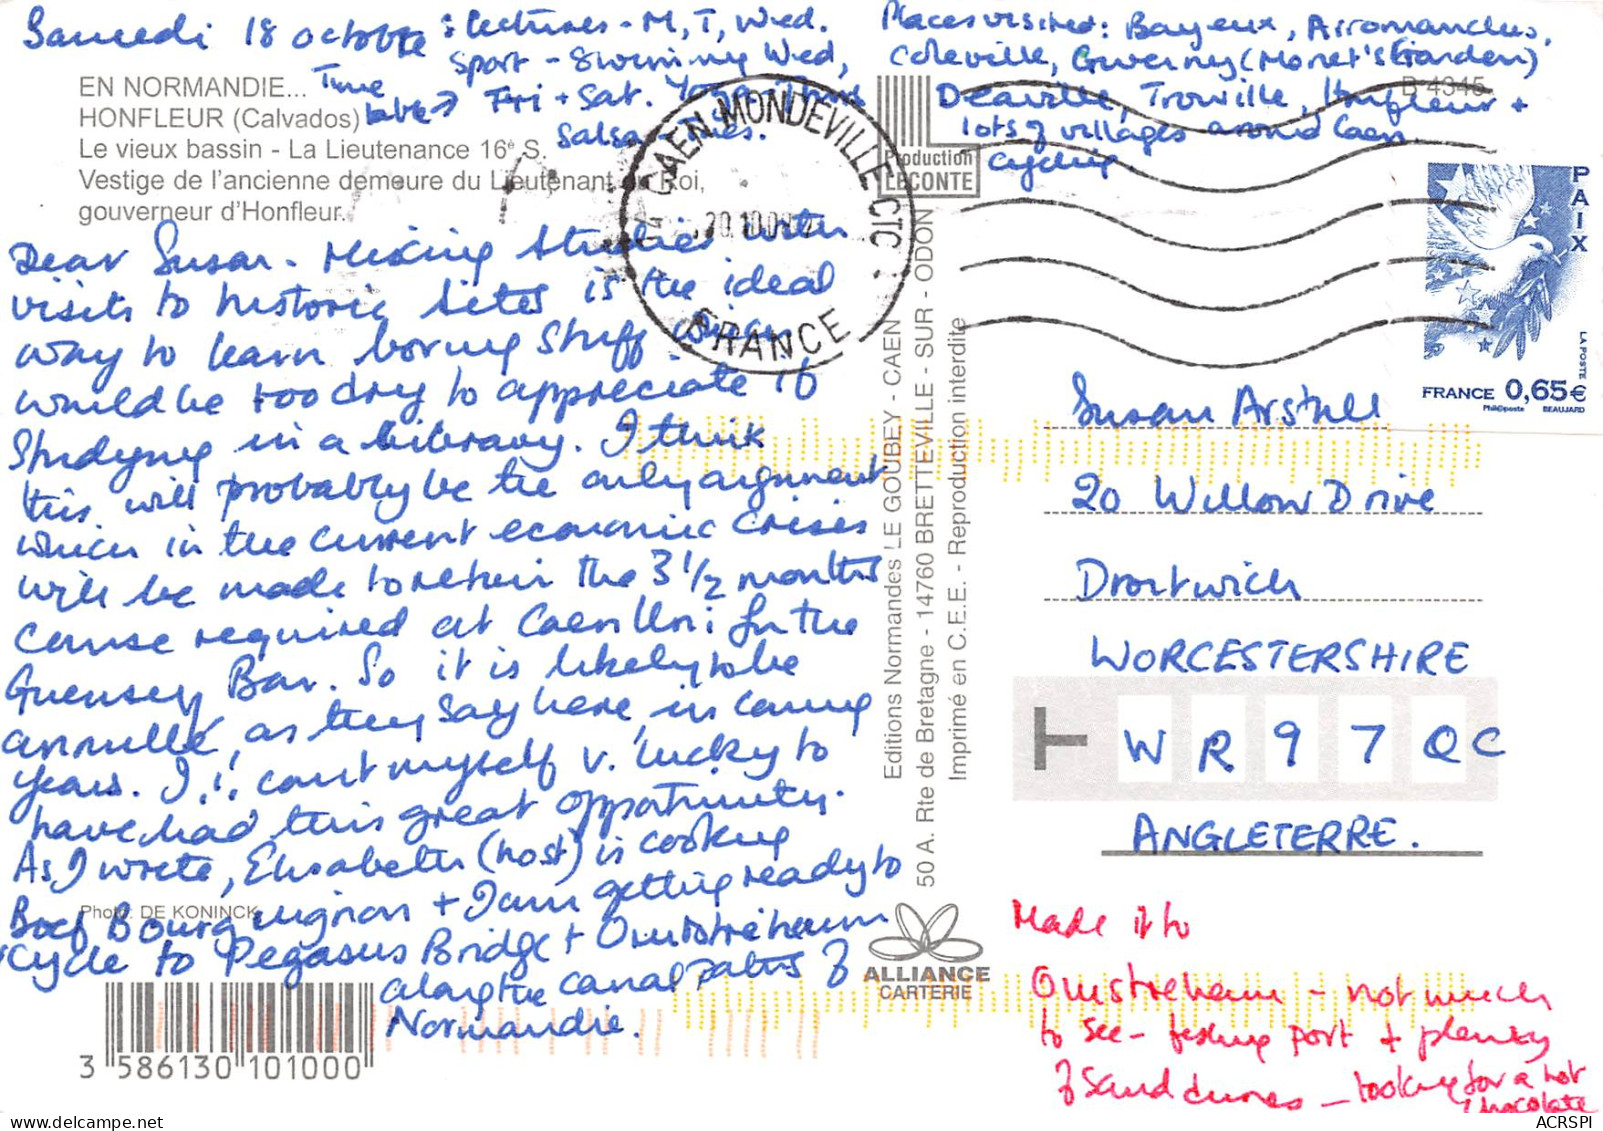 Samedi 18 octobre : Lectures - M, T, Wed.
Sport - Swimming Wed,
Time
table → Fri + Sat. Yoga - Thurs
Salsa - Tues.
Places visited: Bayeux, Arromanches,
Coleville, Giverny (Monet's Garden)
Deauville, Trouville, Honfleur +
lots of villages around Caen
cycling
EN NORMANDIE...
HONFLEUR (Calvados)
Le vieux bassin - La Lieutenance 16e S.
Vestige de l'ancienne demeure du Lieutenant du Roi,
gouverneur d'Honfleur.
B 4345
Production
LECONTE
CAEN MONDEVILLE CTC
20.10.08
FRANCE
PAIX
LA POSTE
FRANCE 0,65€
Phil@poste BEAUJARD
Dear Susan - Mixing studies with
visits to historic sites is the ideal
way to learn boring stuff which
would be too dry to appreciate if
studying in a library. I think
this will probably be the only argument
which in the current economic crisis
will be made to retain the 3 1/2 months
course required at Caen Uni for the
Guernsey Bar. So it is likely to be
annullé, as they say here, in coming
years. I count myself v. lucky to
have had this great opportunity.
As I write, Elisabeth (host) is cooking
Boeuf Bourguignon + I am getting ready to
cycle to Pegasus Bridge + Ouistreham
along the canal paths of
Normandie.
Photo: DE KONINCK
3 586130 101000
Editions Normandes LE GOUBEY - CAEN
50 A. Rte de Bretagne - 14760 BRETTEVILLE - SUR - ODON
Imprimé en C.E.E. - Reproduction interdite
ALLIANCE
CARTERIE
Susan Arstall
20 Willow Drive
Droitwich
WORCESTERSHIRE
WR9 7QC
ANGLETERRE.
Made it to
Ouistreham - not much
to see - fishing port + plenty
of sand dunes - looking for a hot
chocolate
ACRSPI